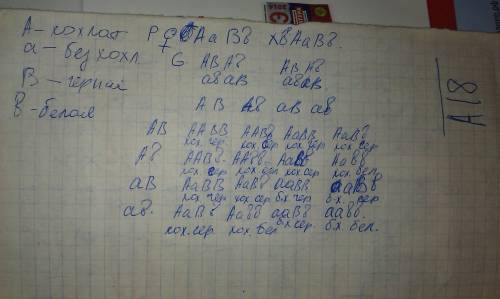 А - хохлат P ♀ АаВв х ♂ АаВв.
а - без хохл. G АВ Ав АВ Ав
В - чёрная ав аВ ав аВ
в - белая АВ Ав аВ ав
АВ ААВВ ААВв АаВВ АаВв
хох. чер. хох. сер. хох. чер. хох. сер.
Ав ААВв ААвв АаВв Аавв
хох. сер. хох. бел. хох. сер. хох. бел.
аВ АаВВ АаВв ааВВ ааВв
хох. чер. хох. сер. бх. чер. б.х. сер.
ав. АаВв Аавв ааВв аавв.
хох. сер. хох. бел. бх. сер. бх. бел.
А18
2014